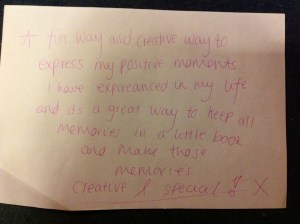 A fun way and creative way to
express my positive moments
I have expireanced in my life
and its a great way to keep all
memories in a little book
and make those
memories
creative & special !! X